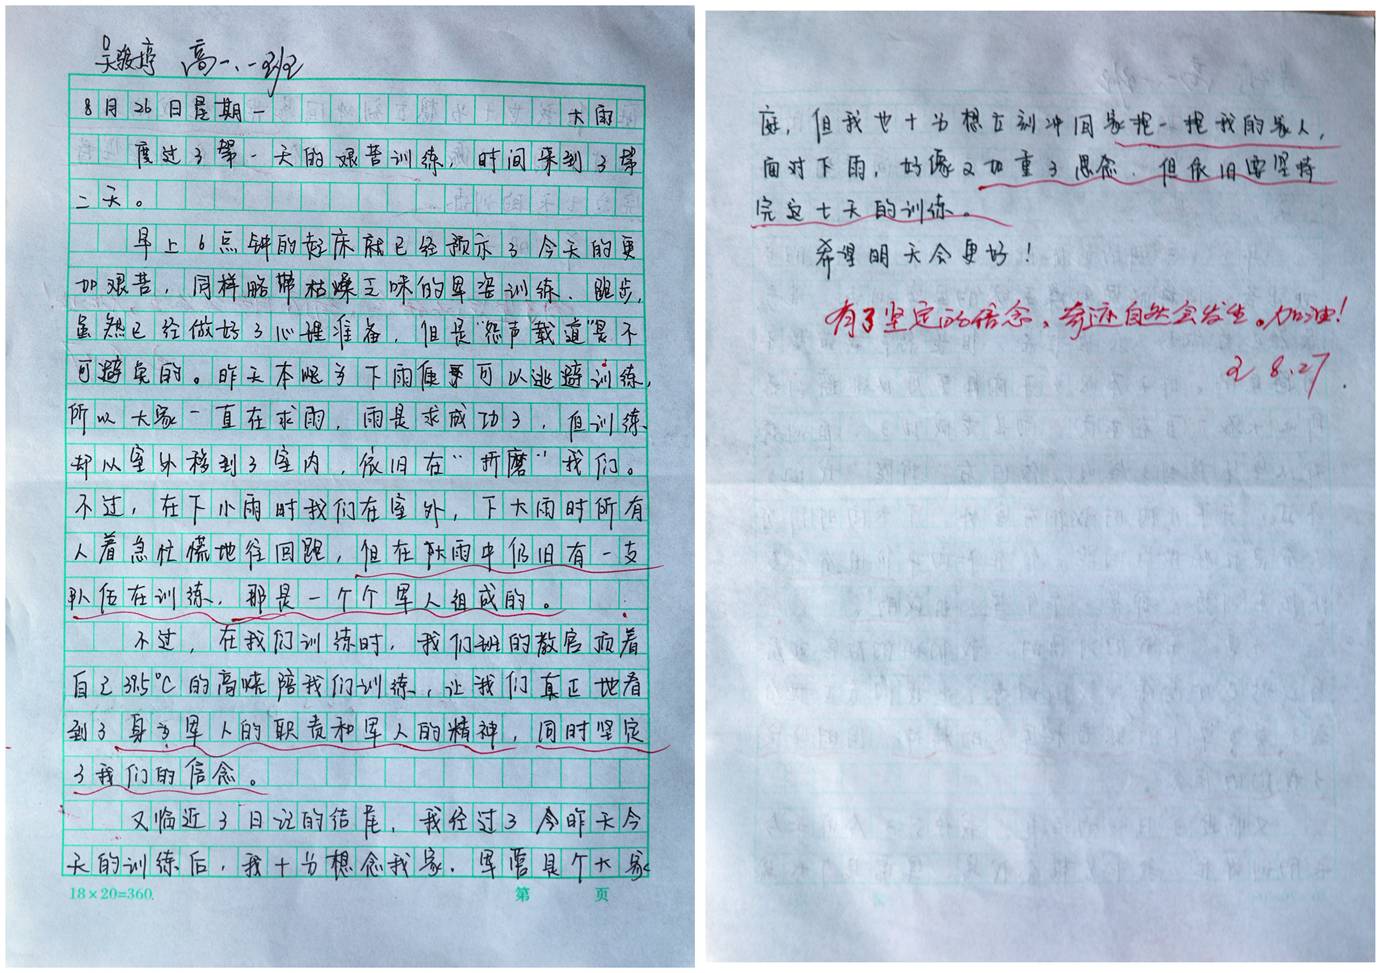 吴骏婷 高一、一班
8月26日星期一 大雨
度过了第一天的艰苦训练，时间来到了第
二天。
早上6点钟的起床就已经预示了今天的更
加艰苦，同样略带枯燥乏味的军姿训练、跑步，
虽然已经做好了心理准备，但是“怨声载道”是不
可避免的。昨天本呢为下雨便可以逃避训练，
所以大家一直在求雨，雨是求成功了，但训练
却从室外移到了室内，依旧在“折磨”我们。
不过，在下小雨时我们在室外，下大雨时所有
人着急忙慌地往回跑，但在阵雨中仍旧有一支
队伍在训练，那是一个个军人组成的。
不过，在我们训练时，我们班的教官顶着
自己39.5℃的高烧陪我们训练，让我们真正地看
到了身为军人的职责和军人的精神，同时坚定
了我们的信念。
又临近了日记的结尾，我经过了今昨天今
天的训练后，我十分想念我家，军营是个大家
庭，但我也十分想立刻冲回家抱一抱我的家人，
面对下雨，好像又加重了思念，但依旧要坚持
完这七天的训练。
希望明天会更好！
有了坚定的信念，奇迹自然会发生。加油！
8.27
18×20=360
第 页